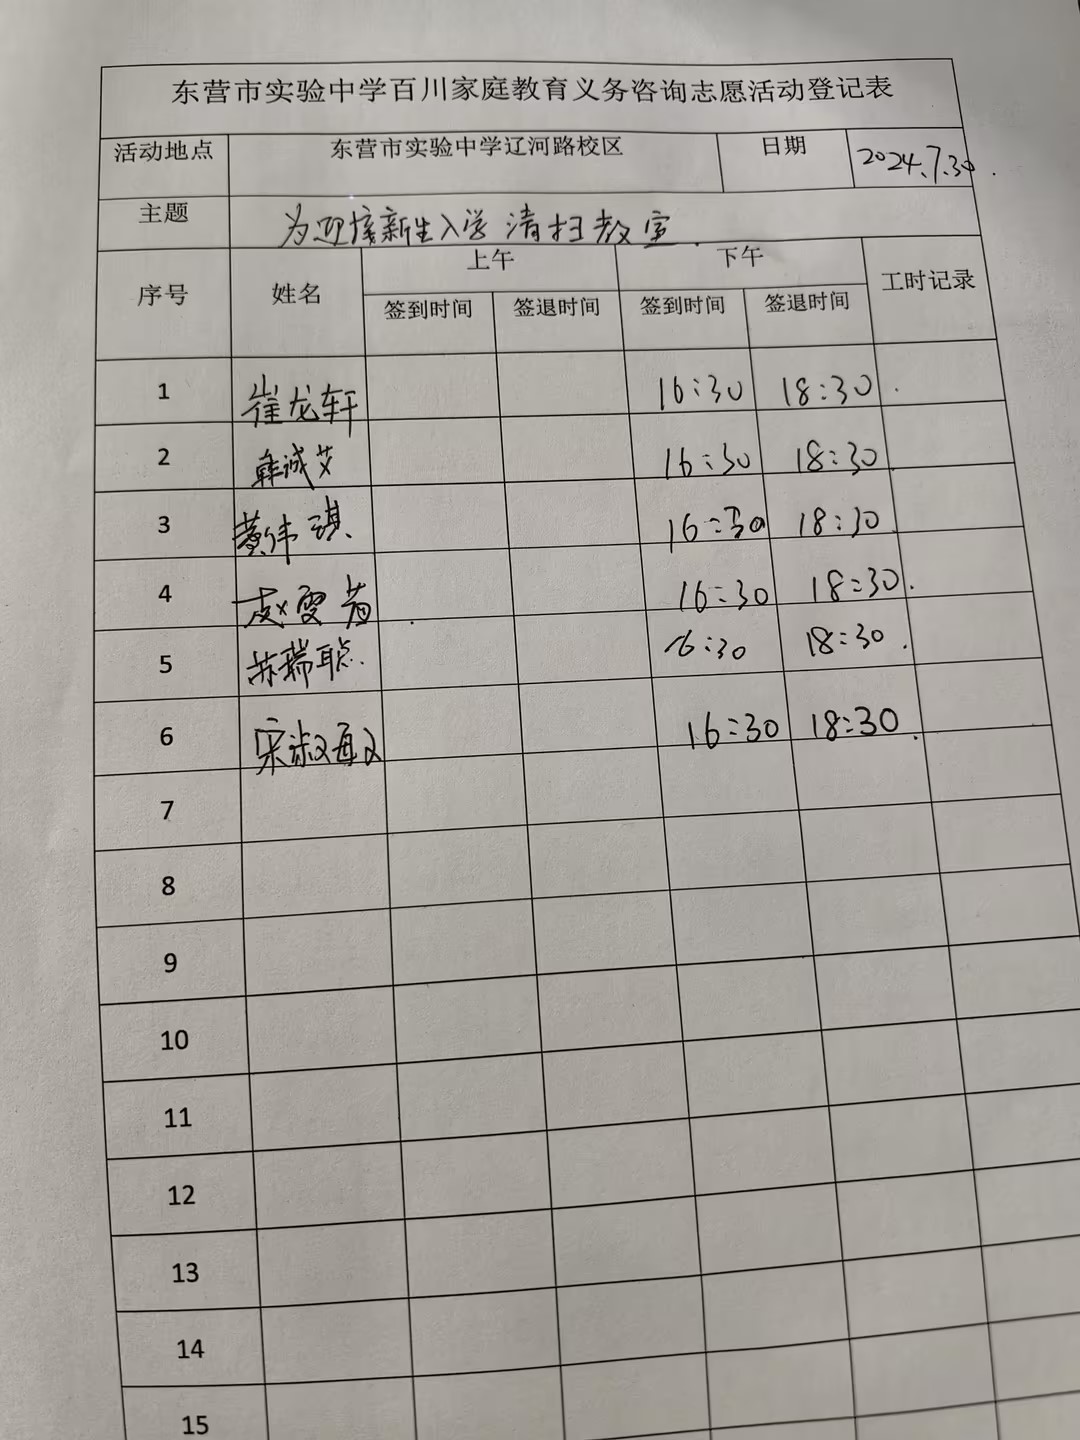 东营市实验中学百川家庭教育义务咨询志愿活动登记表
活动地点 东营市实验中学辽河路校区 日期 2024.7.30.
主题 为迎接新生入学清扫教室.
序号 姓名 上午 下午 工时记录
签到时间 签退时间 签到时间 签退时间
1 崔龙轩 16:30 18:30.
2 诚艾 16:30 18:30
3 黄伟琪 16:30 18:30
4 赵雯 16:30 18:30.
5 苏瑞聪 16:30 18:30.
6 宋淑 16:30 18:30.
7
8
9
10
11
12
13
14
15